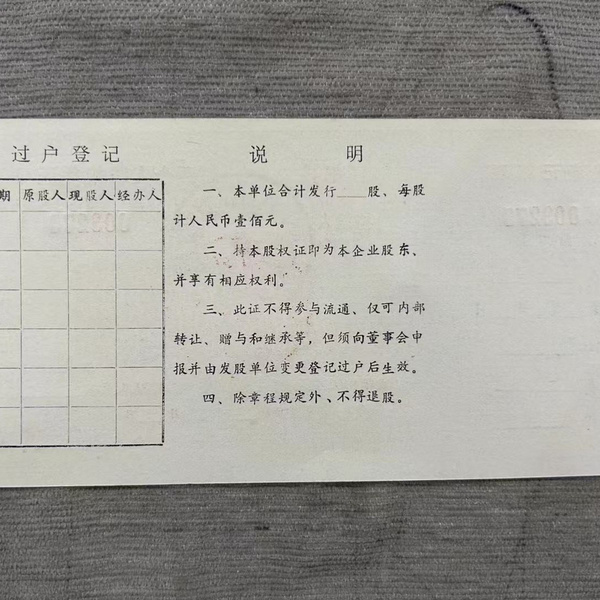 过户登记
期 原股人 现股人 经办人
说 明
一、本单位合计发行___股、每股
计人民币壹佰元。
二、持本股权证即为本企业股东、
并享有相应权利。
三、此证不得参与流通、仅可内部
转让、赠与和继承等，但须向董事会申
报并由发股单位变更登记过户后生效。
四、除章程规定外、不得退股。